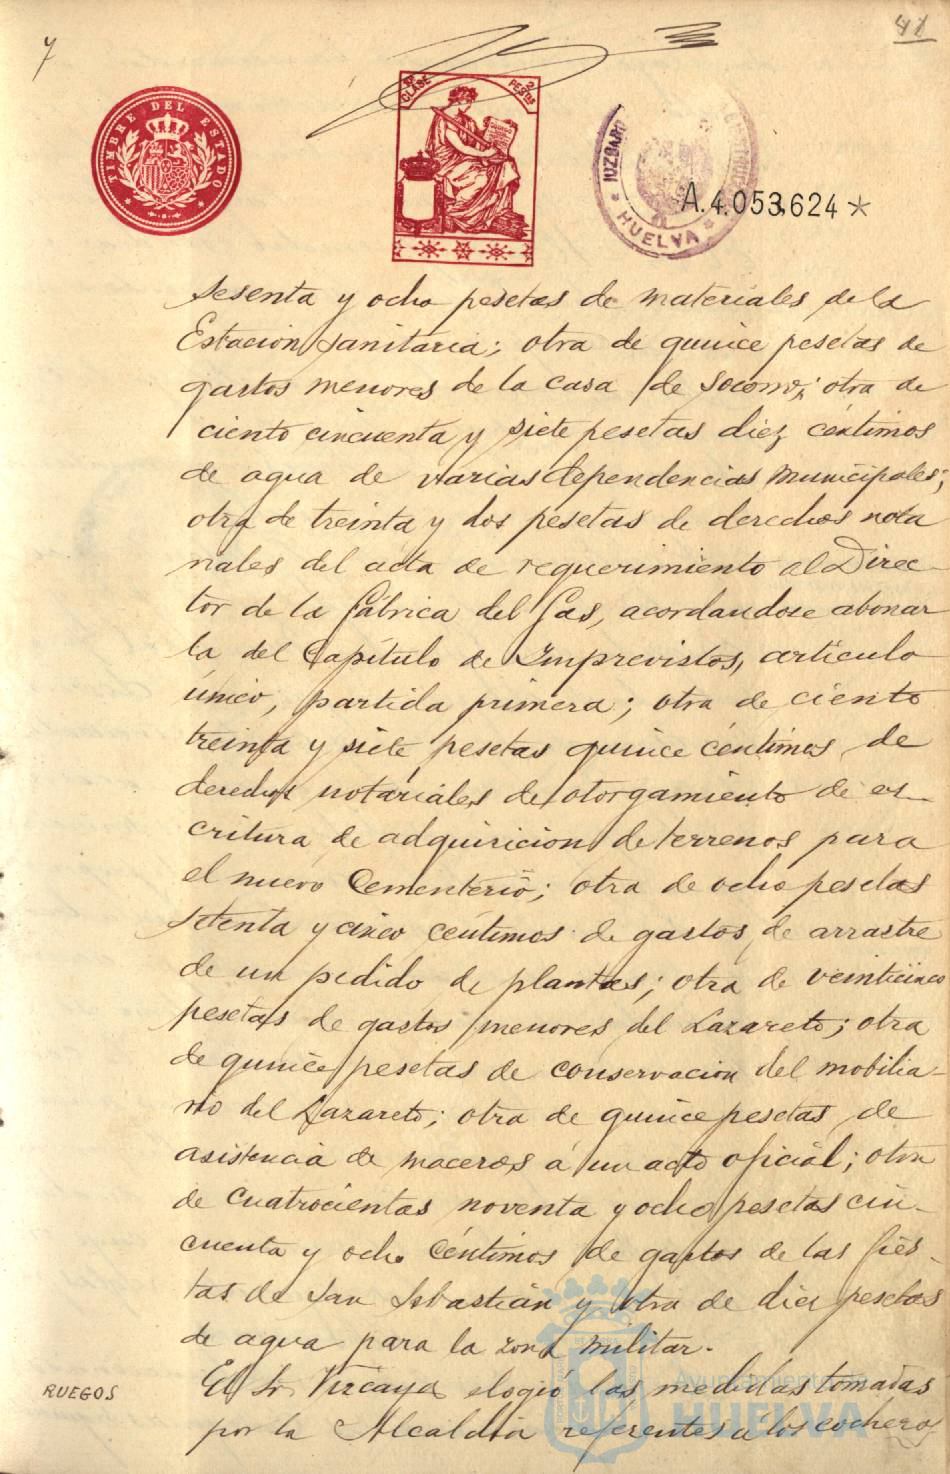 7
41
TIMBRE DEL ESTADO
10ª CLASE
2 PESETAS
JUZGADO
HUELVA
A.4.053,624*
sesenta y ocho pesetas de materiales de la
Estacion sanitaria; otra de quince pesetas de
gastos menores de la casa de socorro; otra de
ciento cincuenta y siete pesetas diez céntimos
de agua de varias dependencias municipales;
otra de treinta y dos pesetas de derechos nota
riales del acta de requerimiento al Direc-
tor de la Fábrica del Gas, acordandose abonar
la del Capítulo de Imprevistos, artículo
único, partida primera; otra de ciento
treinta y siete pesetas quince céntimos de
derechos notariales de otorgamiento de es-
critura de adquisicion de terrenos para
el nuevo Cementerio; otra de ocho pesetas
setenta y cinco céntimos de gastos de arrastre
de un pedido de plantas; otra de veinticinco
pesetas de gastos menores del Lazareto; otra
de quince pesetas de conservacion del mobilia-
rio del Lazareto; otra de quince pesetas de
asistencia de maceros á un acto oficial; otra
de cuatrocientas noventa y ocho pesetas cin-
cuenta y ocho céntimos de gastos de las fies-
tas de San Sebastian y otra de diez pesetas
de agua para la zona militar.
RUEGOS
El Sr. Vizcaya elogió las medidas tomadas
por la Alcaldia referentes á los cocheros
Ayuntamiento de
HUELVA